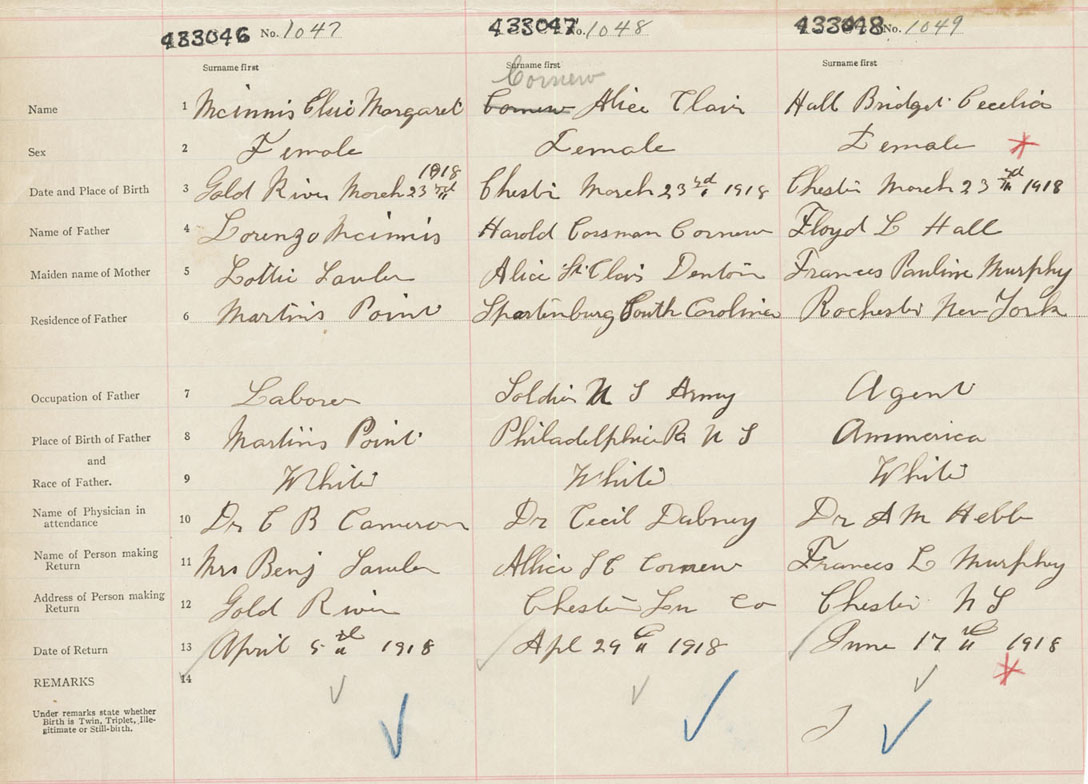 433046 No. 1047 433047 No. 1048 433048 No. 1049
Surname first Surname first Surname first
Cornew
Name 1 Mcinnis Elsie Margaret Cornew Alice Clair Hall Bridget Cecelia
Sex 2 Female Female Female
1918
Date and Place of Birth 3 Gold River March 23rd Chester March 23rd 1918 Chester March 23rd 1918
Name of Father 4 Lorenzo Mcinnis Harold Cossman Cornew Floyd L Hall
Maiden name of Mother 5 Lottie Lawler Alice St Clair Denton Frances Pauline Murphy
Residence of Father 6 Martins Point Spartinburg South Carolina Rochester New York
Occupation of Father 7 Laborer Soldier U S Army Agent
Place of Birth of Father 8 Martins Point Philadelphia Pa U S Ammerica
and
Race of Father. 9 White White White
Name of Physician in
attendance 10 Dr C B Cameron Dr Cecil Dabney Dr A M Hebb
Name of Person making
Return 11 Mrs Benj Lawler Allice St C Cornew Frances L Murphy
Address of Person making
Return 12 Gold River Chester Lun Co Chester N S
Date of Return 13 April 5th 1918 Apl 29th 1918 June 17th 1918
REMARKS 14
Under remarks state whether
Birth is Twin, Triplet, Ille-
gitimate or Still-birth.